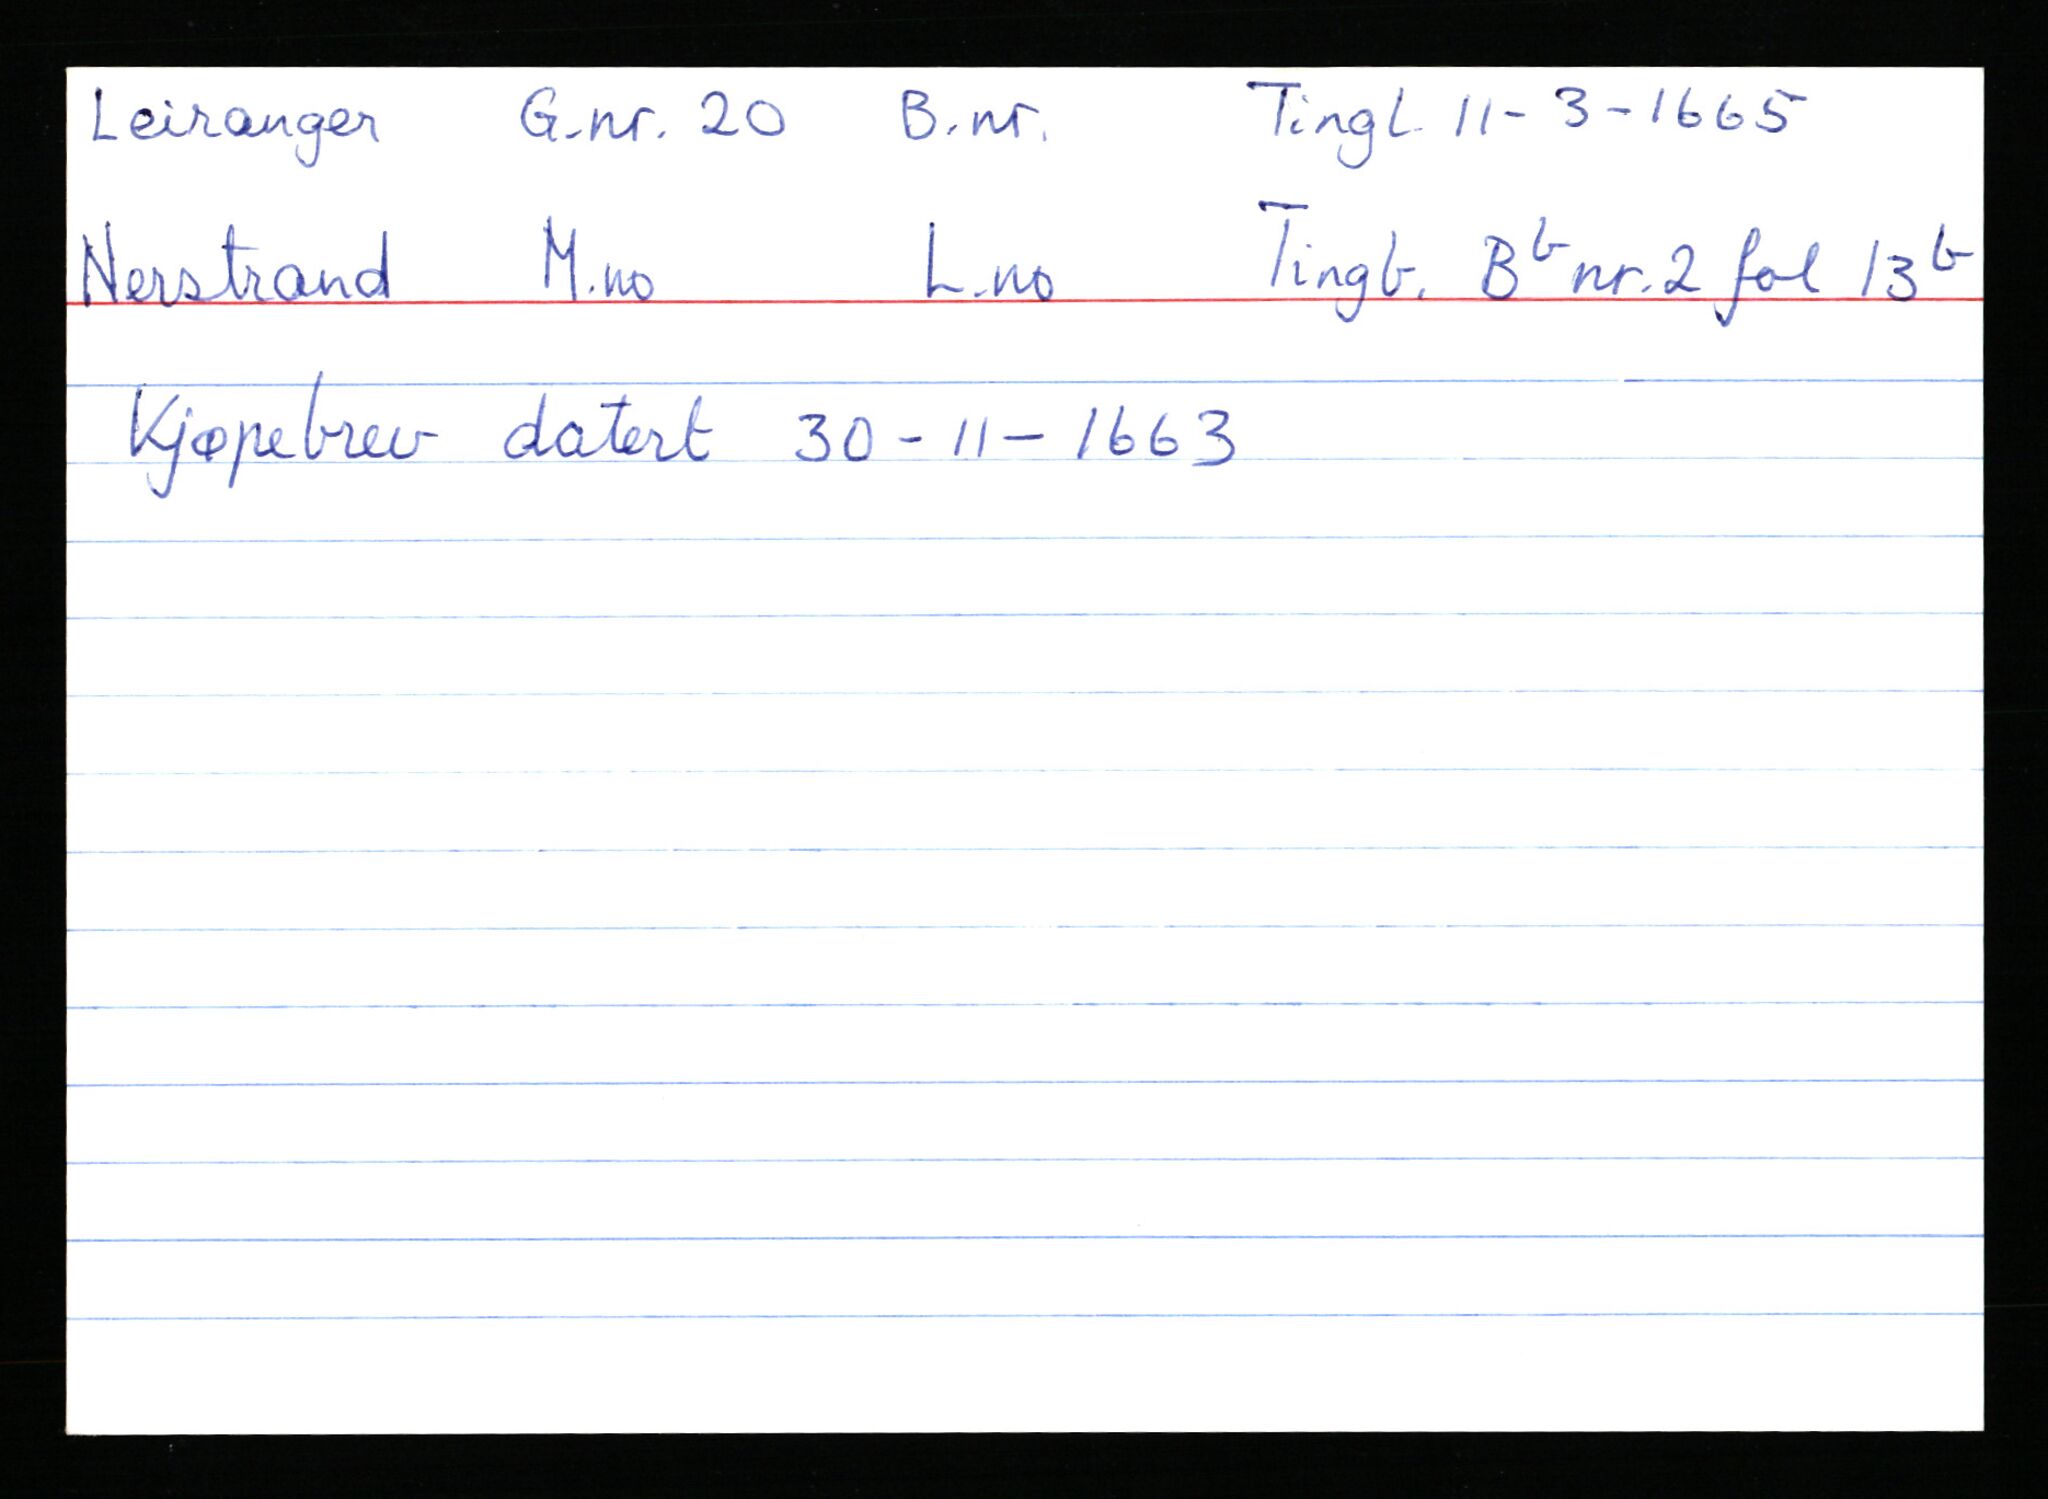 Leiranger G.nr. 20 B.nr. Tingl. 11-3-1665
Nerstrand M.no L.no Tingb. Bb nr. 2 fol 13b
Kjøpebrev datert 30-11-1663